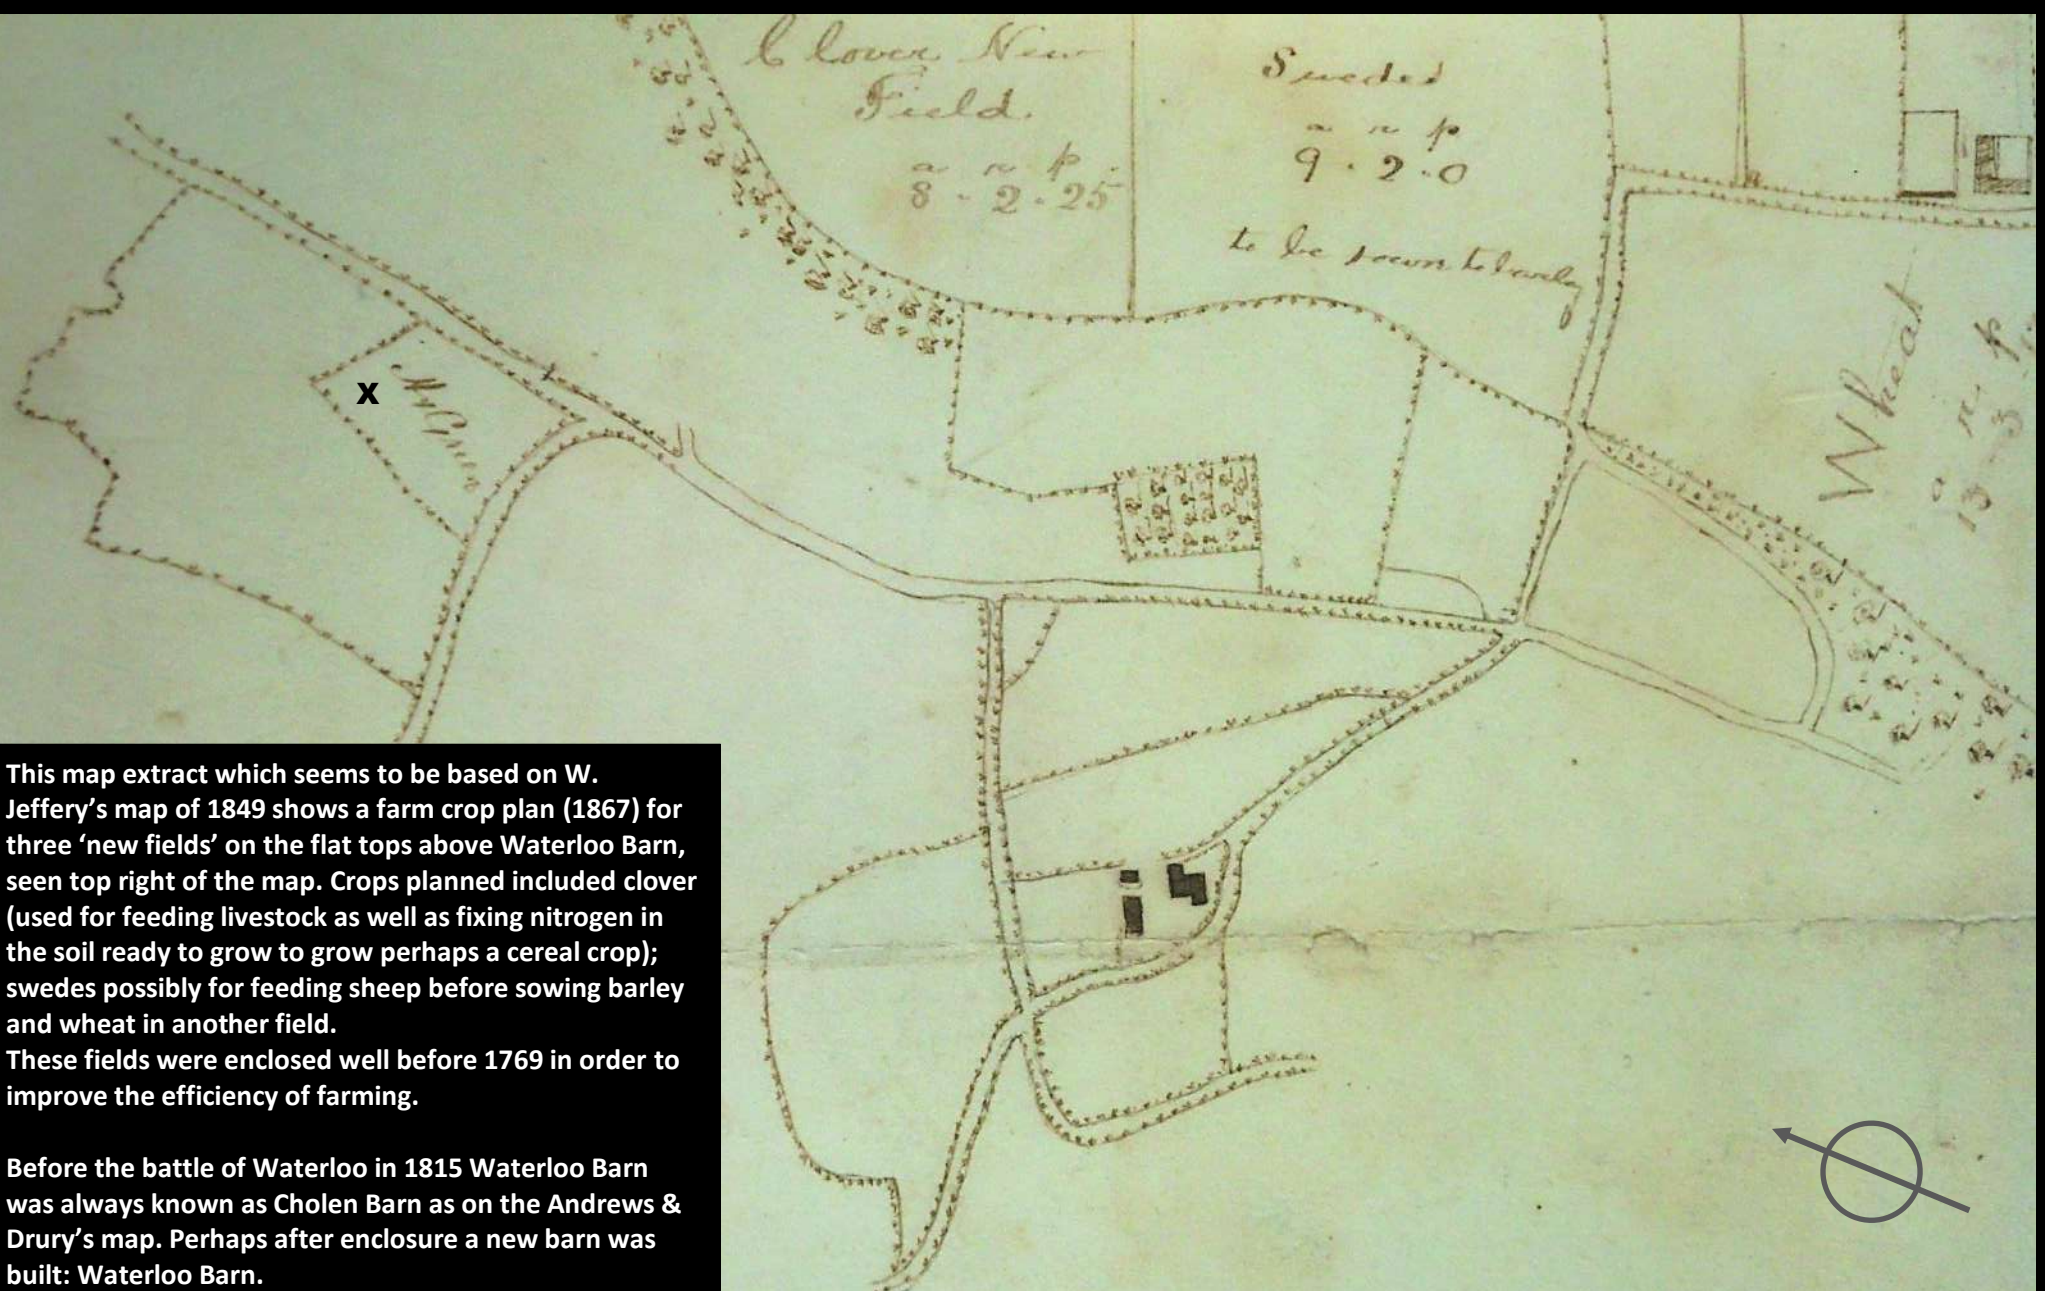 Clover New
Field
a r p
8 - 2 - 25
Swedes
a r p
9 . 2 . 0
to be sown to barley
Wheat
a r p
13 - 3
x
Mr Green
This map extract which seems to be based on W.
Jeffery’s map of 1849 shows a farm crop plan (1867) for
three ‘new fields’ on the flat tops above Waterloo Barn,
seen top right of the map. Crops planned included clover
(used for feeding livestock as well as fixing nitrogen in
the soil ready to grow to grow perhaps a cereal crop);
swedes possibly for feeding sheep before sowing barley
and wheat in another field.
These fields were enclosed well before 1769 in order to
improve the efficiency of farming.
Before the battle of Waterloo in 1815 Waterloo Barn
was always known as Cholen Barn as on the Andrews &
Drury’s map. Perhaps after enclosure a new barn was
built: Waterloo Barn.